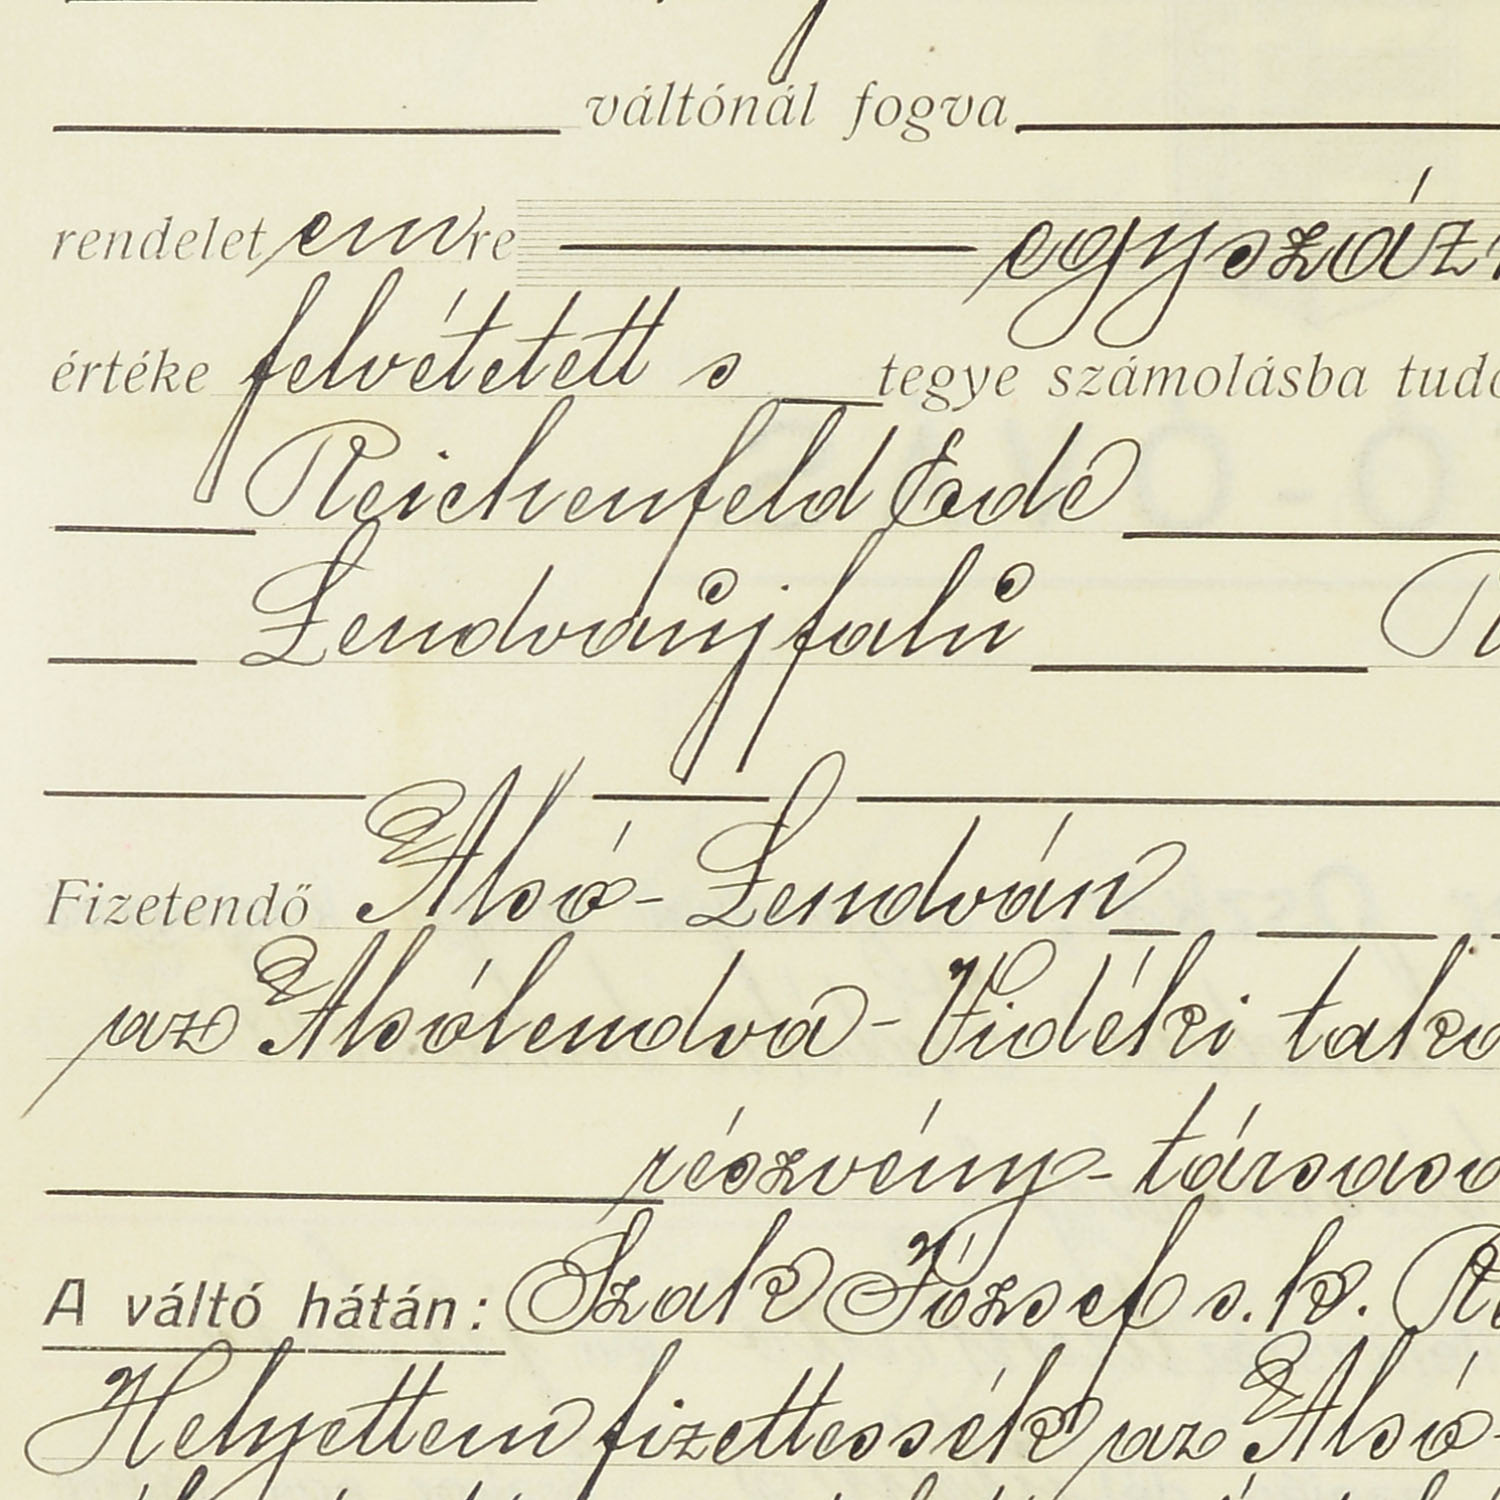 váltónál fogva
rendelet emre egyszáz
értéke felvétetett s tegye számolásba
Reichenfeld Ede
Lendvaújfalu
Fizetendő Alsó-Lendván
az Alsólendva-Vidéki
részvény-
A váltó hátán: Szak József s. k.
Helyettem fizettessék az Alsó-